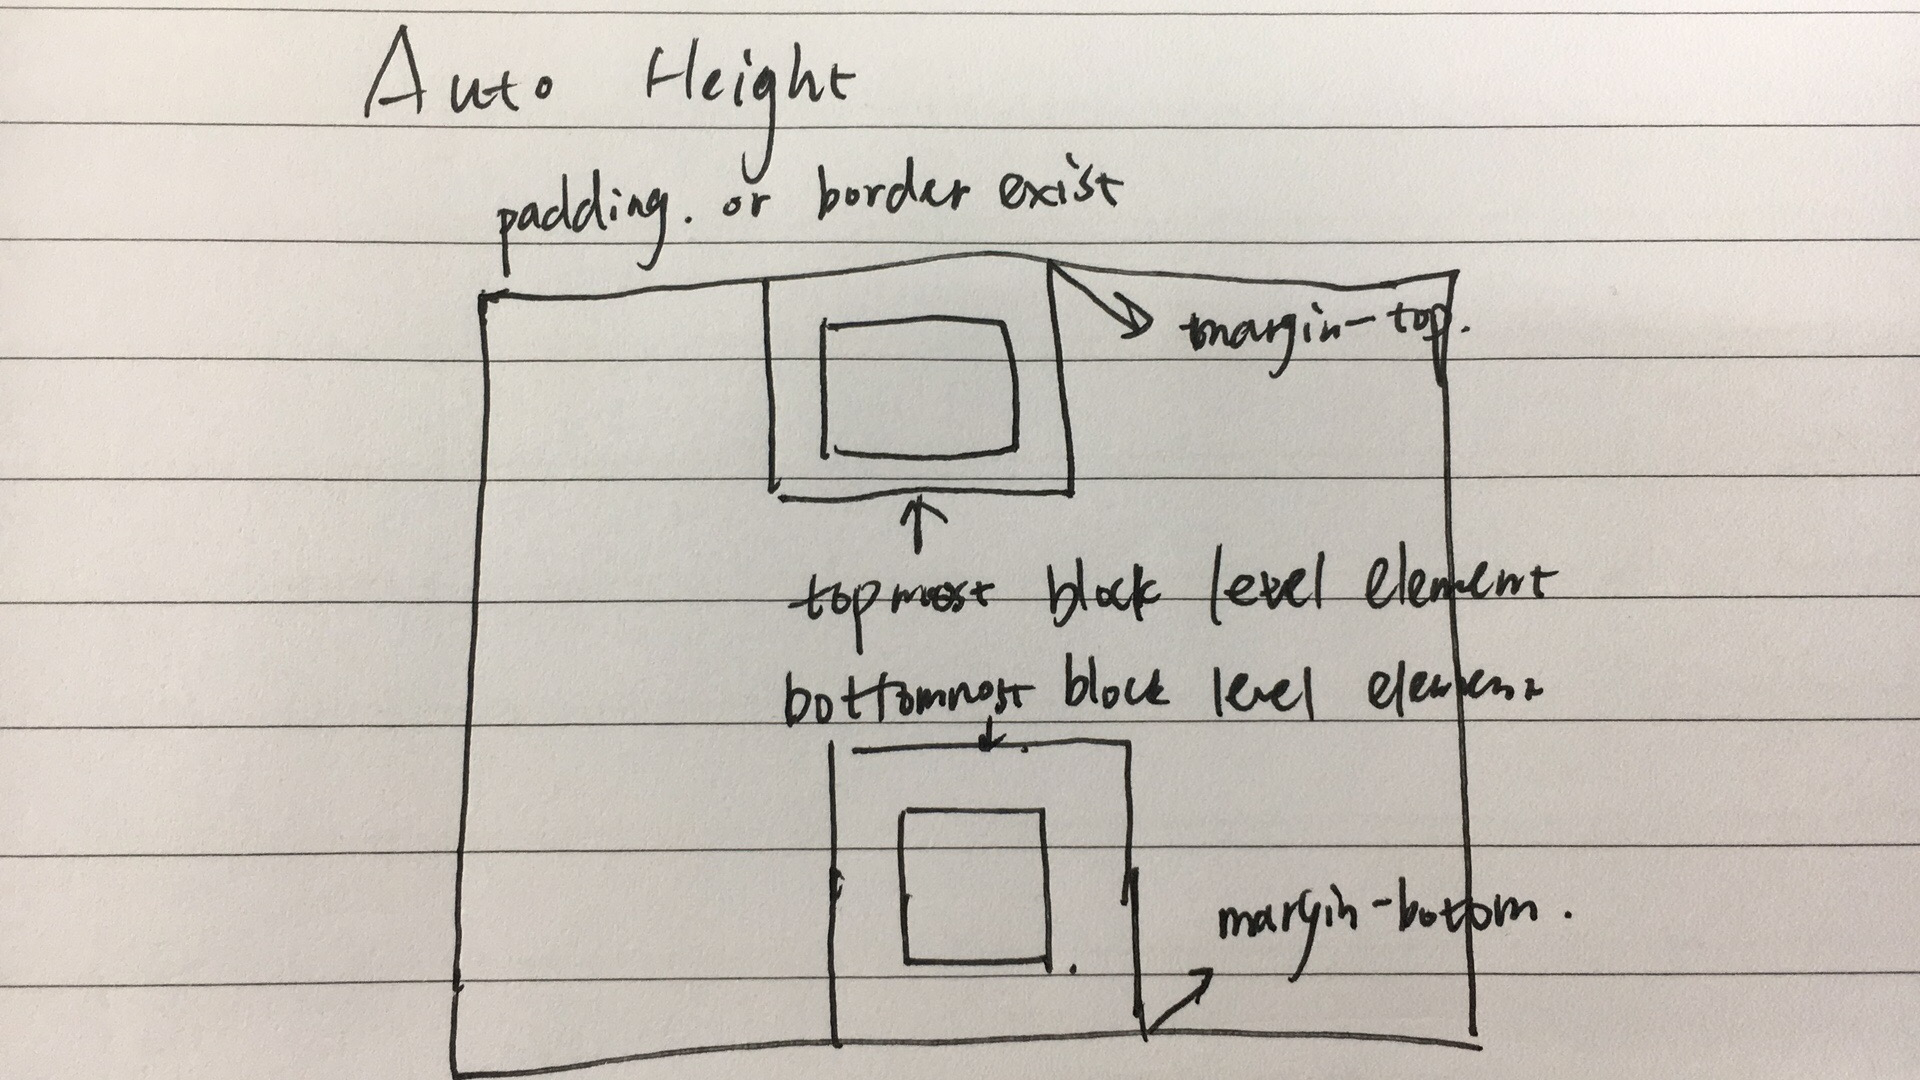 Auto Height
padding. or border exist
margin-top.
topmost block level element
bottommost block level element
margin-bottom.